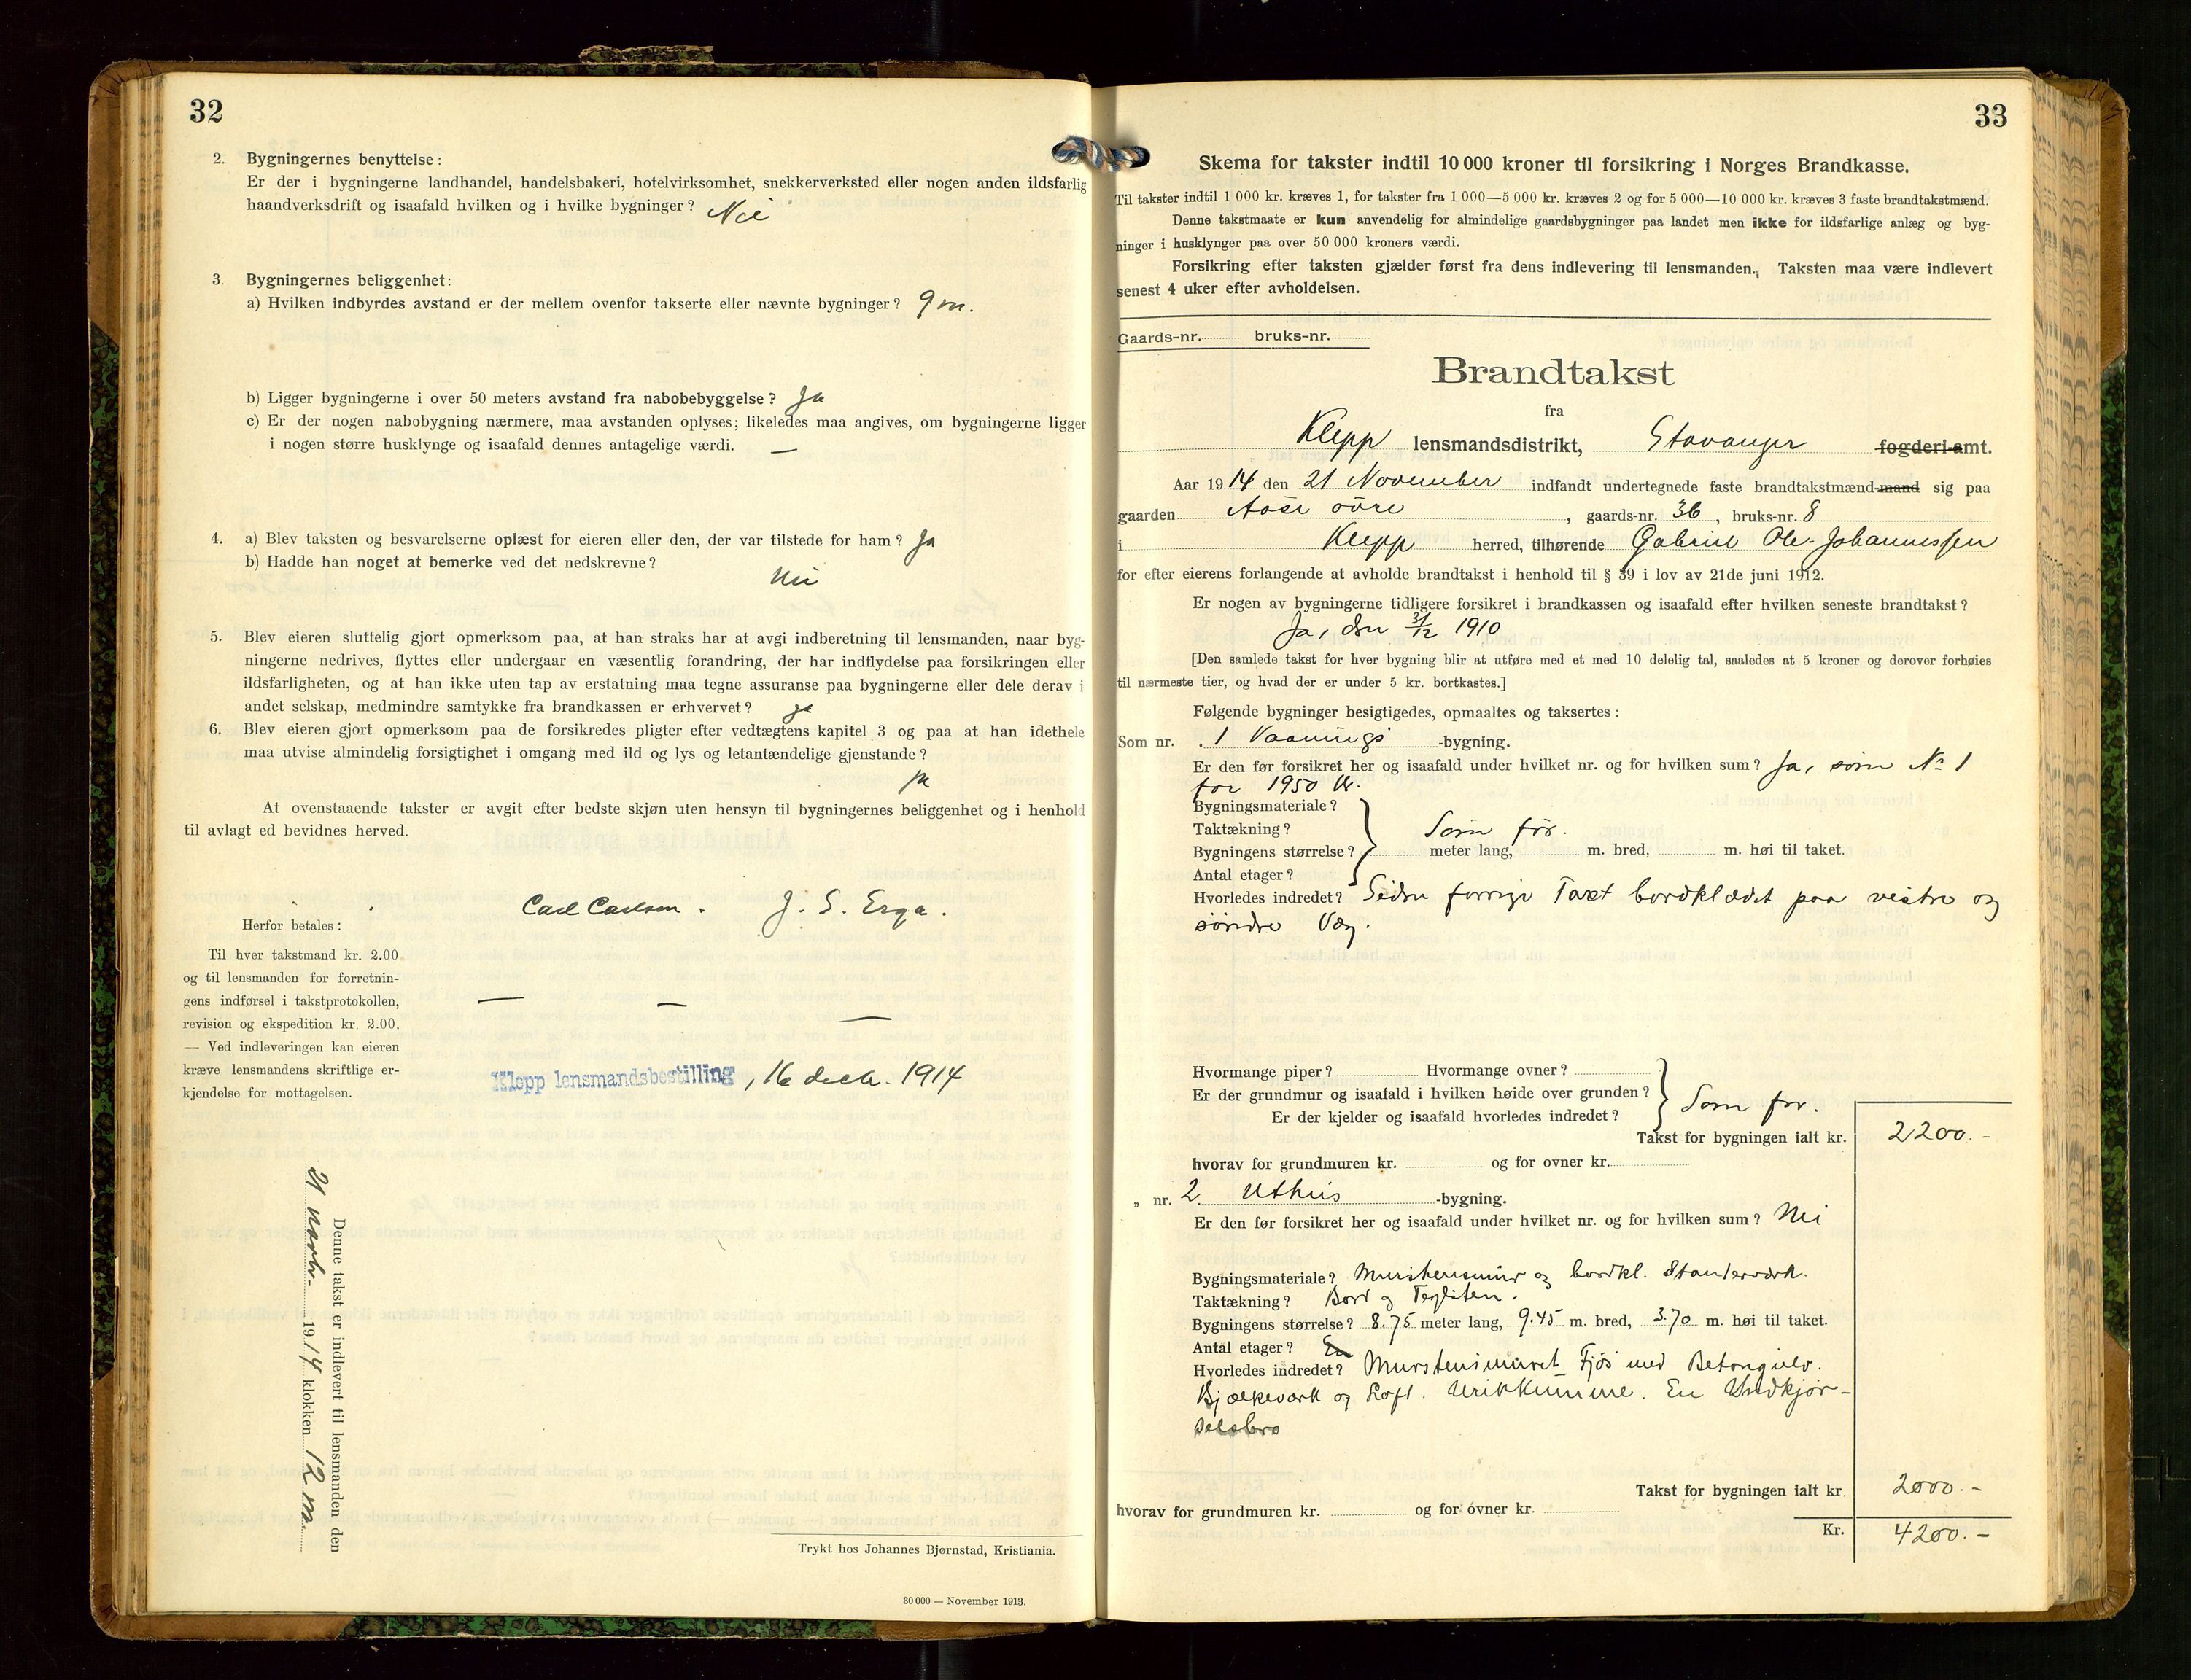 32
2. Bygningernes benyttelse:
Er der i bygningerne landhandel, handelsbakeri, hotelvirksomhet, snekkerverksted eller nogen anden ildsfarlig
haandverksdrift og isaafald hvilken og i hvilke bygninger? Nei
3. Bygningernes beliggenhet:
a) Hvilken indbyrdes avstand er der mellem ovenfor takserte eller nævnte bygninger? 9 m.
b) Ligger bygningerne i over 50 meters avstand fra nabobebyggelse? Ja
c) Er der nogen nabobygning nærmere, maa avstanden oplyses; likeledes maa angives, om bygningerne ligger
i nogen større husklynge og isaafald dennes antagelige værdi. —
4. a) Blev taksten og besvarelserne oplæst for eieren eller den, der var tilstede for ham? Ja
b) Hadde han noget at bemerke ved det nedskrevne?
Nei
5. Blev eieren sluttelig gjort opmerksom paa, at han straks har at avgi indberetning til lensmanden, naar byg-
ningerne nedrives, flyttes eller undergaar en væsentlig forandring, der har indflydelse paa forsikringen eller
ildsfarligheten, og at han ikke uten tap av erstatning maa tegne assuranse paa bygningerne eller dele derav i
andet selskap, medmindre samtykke fra brandkassen er erhvervet? ja
6. Blev eieren gjort opmerksom paa de forsikredes pligter efter vedtægtens kapitel 3 og paa at han idethele
maa utvise almindelig forsigtighet i omgang med ild og lys og letantændelige gjenstande?
ja
At ovenstaaende takster er avgit efter bedste skjøn uten hensyn til bygningernes beliggenhet og i henhold
til avlagt ed bevidnes herved.
Carl Carlsen. J. S. Erga.
Herfor betales:
Til hver takstmand kr. 2.00
og til lensmanden for forretnin-
gens indførsel i takstprotokollen,
revision og ekspedition kr. 2.00.
— Ved indleveringen kan eieren
kræve lensmandens skriftlige er-
kjendelse for mottagelsen.
— — —
Klepp lensmandsbestilling, 16 decb. 1914
Denne takst er indlevert til lensmanden den
21 novbr. 1914 klokken 12 m.
Trykt hos Johannes Bjørnstad, Kristiania.
30 000 — November 1913.
33
Skema for takster indtil 10 000 kroner til forsikring i Norges Brandkasse.
Til takster indtil 1 000 kr. kræves 1, for takster fra 1 000—5 000 kr. kræves 2 og for 5 000—10 000 kr. kræves 3 faste brandtakstmænd.
Denne takstmaate er kun anvendelig for almindelige gaardsbygninger paa landet men ikke for ildsfarlige anlæg og byg-
ninger i husklynger paa over 50 000 kroners værdi.
Forsikring efter taksten gjælder først fra dens indlevering til lensmanden. Taksten maa være indlevert
senest 4 uker efter avholdelsen.
Gaards-nr. bruks-nr.
Brandtakst
fra
Klepp lensmandsdistrikt, Stavanger fogderi-amt.
Aar 1914 den 21 November indfandt undertegnede faste brandtakstmænd-mand sig paa
gaarden øvre, gaards-nr. 36, bruks-nr. 8
i Klepp herred, tilhørende Gabriel Ole Johannessen
for efter eierens forlangende at avholde brandtakst i henhold til § 39 i lov av 21de juni 1912.
Er nogen av bygningerne tidligere forsikret i brandkassen og isaafald efter hvilken seneste brandtakst?
Ja, den 31/12 1910
[Den samlede takst for hver bygning blir at utføre med et med 10 delelig tal, saaledes at 5 kroner og derover forhøies
til nærmeste tier, og hvad der er under 5 kr. bortkastes.]
Følgende bygninger besigtigedes, opmaaltes og taksertes:
Som nr. 1 Vaanings -bygning.
Er den før forsikret her og isaafald under hvilket nr. og for hvilken sum? Ja, som No 1
for 1950 Kr.
Bygningsmateriale?
Taktækning? Som før.
Bygningens størrelse? meter lang, m. bred, m. høi til taket.
Antal etager?
Hvorledes indredet? Siden forrige Taxt bordklædet paa vestre og
søndre Væg.
Hvormange piper? Hvormange ovner?
Er der grundmur og isaafald i hvilken høide over grunden? Som før.
Er der kjelder og isaafald hvorledes indredet?
Takst for bygningen ialt kr. 2200.-
hvorav for grundmuren kr. og for ovner kr.
„ nr. 2 Uthus -bygning.
Er den før forsikret her og isaafald under hvilket nr. og for hvilken sum? Nei
Bygningsmateriale? Murstensmur og bordkl. Standerværk.
Taktækning? Bord og Teglsten.
Bygningens størrelse? 8.75 meter lang, 9.45 m. bred, 3.70 m. høi til taket.
Antal etager? En
Hvorledes indredet? Murstensmuret Fjøs med Betongulv.
Bjælkeværk og Loft. Urinkumme. En Indkjør-
selsbro
Takst for bygningen ialt kr. 2000.-
hvorav for grundmuren kr. og for ovner kr.
Kr. 4200.-